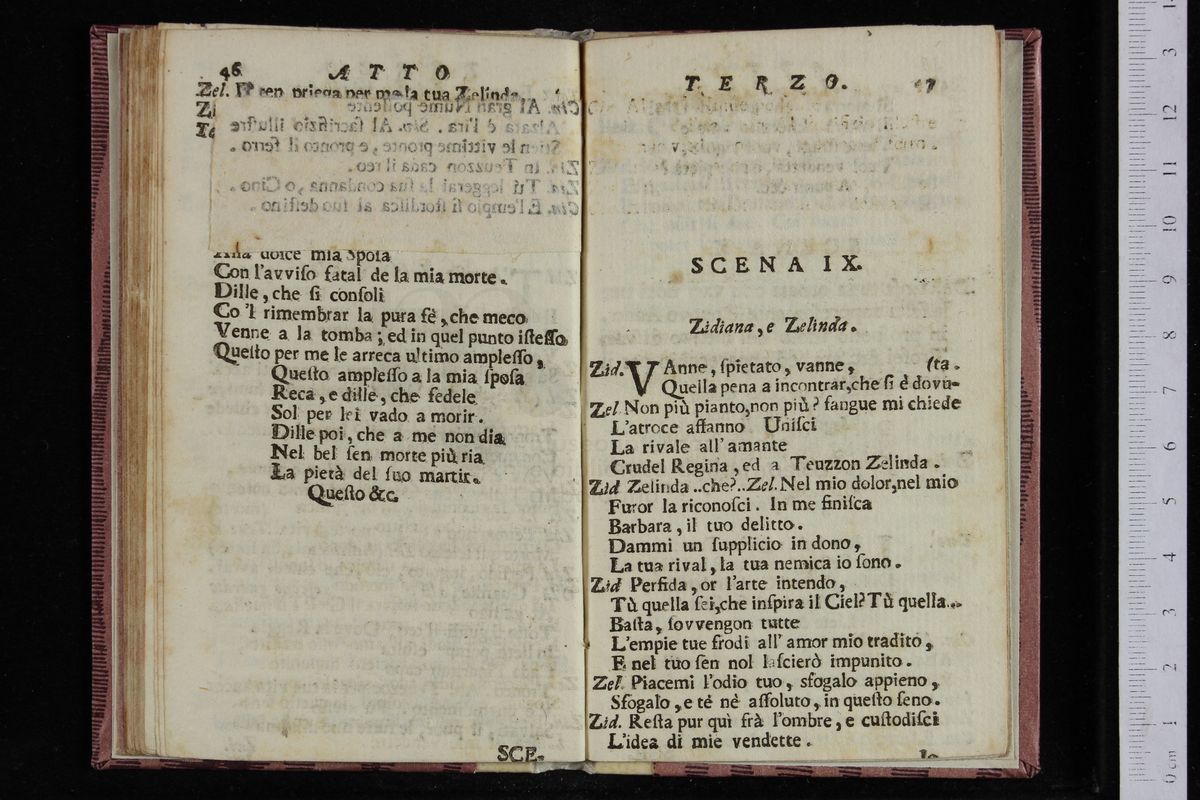 46 ATTO
Zel. per me la tua Zelinda
dolce mia Sposa
Con l'avviſo fatal de la mia morte.
Dille, che ſi conſoli
Co 'l rimembrar la pura fè, che meco
Venne a la tomba; ed in quel punto iſteſſo
Queſto per me le arreca ultimo ampleſſo,
Queſto ampleſſo a la mia ſpoſa
Reca, e dille, che fedele
Sol per lei vado a morir.
Dille poi, che a me non dia
Nel bel ſen morte più ria
La pietà del ſuo martir.
Queſto &c.
SCE-
Al gran Nume poſſente
Alzata è l'ira. Siv. Al ſacrifizio illuſtre
le vittime pronte, e pronto il ferro.
Zid. In Teuzzon cada il reo.
Zid. Tù leggerai la ſua condanna, o Cino.
Cin. E l'empio ſi ſtordiſca al ſuo deſtino.
TERZO. 47
SCENA IX.
Zidiana, e Zelinda.
Zid. VAnne, ſpietato, vanne, (ta.
Quella pena a incontrar, che ſi è dovu-
Zel Non più pianto, non più? ſangue mi chiede
L'atroce affanno Uniſci
La rivale all' amante
Crudel Regina, ed a Teuzzon Zelinda.
Zid Zelinda..che?..Zel. Nel mio dolor, nel mio
Furor la riconoſci. In me finiſca
Barbara, il tuo delitto.
Dammi un ſupplicio in dono,
La tua rival, la tua nemica io ſono.
Zid Perfida, or l'arte intendo,
Tù quella ſei, che inſpira il Ciel? Tù quella...
Baſta, ſovvengon tutte
L'empie tue frodi all' amor mio tradito,
E nel tuo ſen nol laſcierò impunito.
Zel. Piacemi l'odio tuo, sfogalo appieno,
Sfogalo, e tè nè aſſoluto, in queſto ſeno.
Zid. Reſta pur quì frà l'ombre, e cuſtodiſci
L'idea di mie vendette.